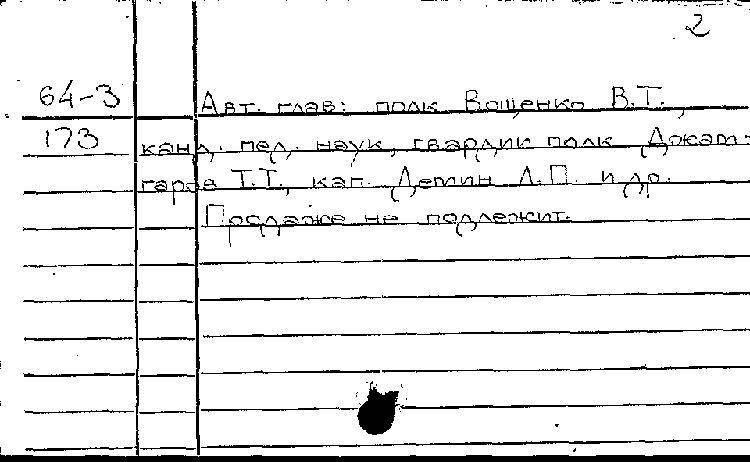 2
64-3 Авт. глав: полк Вощенко В.Т.,
173 канд. пед. наук, гвардии полк Джам-
гаров Т.Т., кап. Демин Л.П. и др.
Продаже не подлежит.